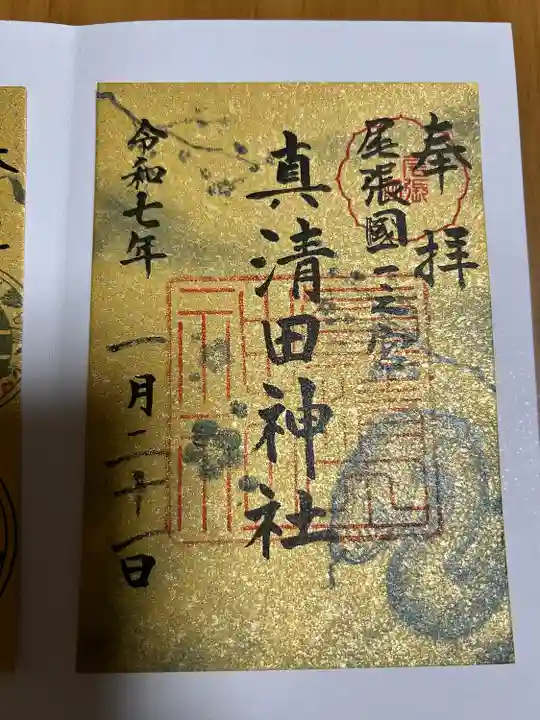 奉拝
尾張國一之宮
真清田神社
令和七年
一月二十一日